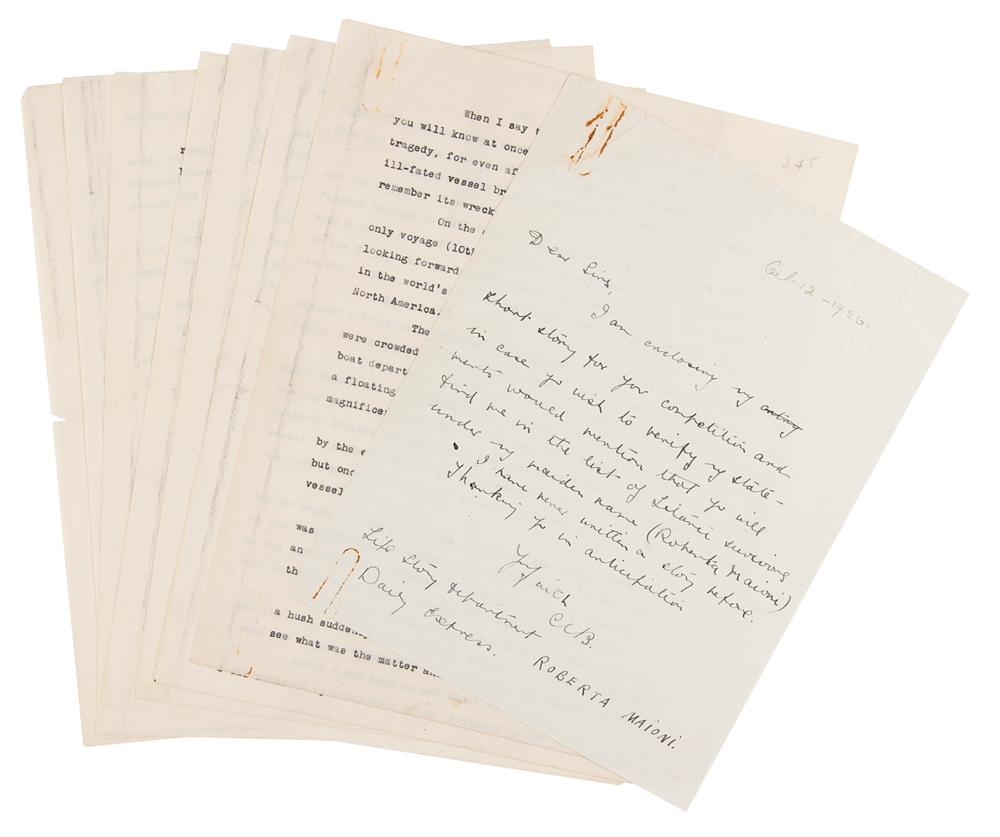 When I say
you will know at once
tragedy, for even af
ill-fated vessel br
remember its wreck
On the
only voyage (10th
looking forward
in the world's
North America.
The
were crowded
boat depart
a floating
magnificen
by the e
but onc
vessel
was
an
th
a hush sudden
see what was the matter an
2 & 5
Oct. 12 - 1926.
Dear Sirs,
I am enclosing my entry
short story for yr competition and
in case yo wish to verify my state-
ments would mention that yo will
find me in the list of Titanic survivors
under my maiden name (Roberta Maioni)
I have never written a story before.
Thanking yo in anticipation
Yrs faith
Life Story Department
Daily Express.
ROBERTA MAIONI.